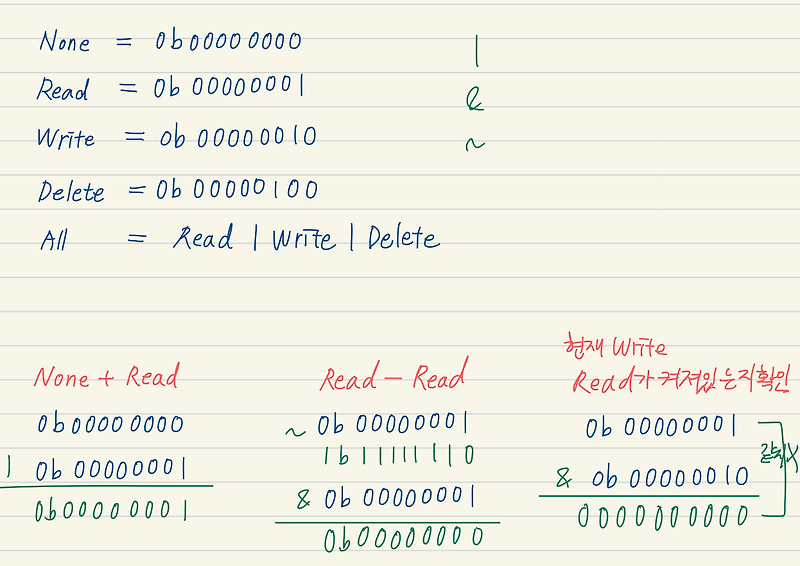 None = 0b00000000
|
Read = 0b 00000001
&
Write = 0b 00000010
~
Delete = 0b 00000100
All = Read | Write | Delete
None + Read
0b00000000
| 0b 00000001
0b00000001
Read - Read
~ 0b 00000001
1b 11111110
& 0b 00000001
0b00000000
현재 Write
Read가 켜져있는지확인
0b 00000001
& 0b 00000010
0000000000